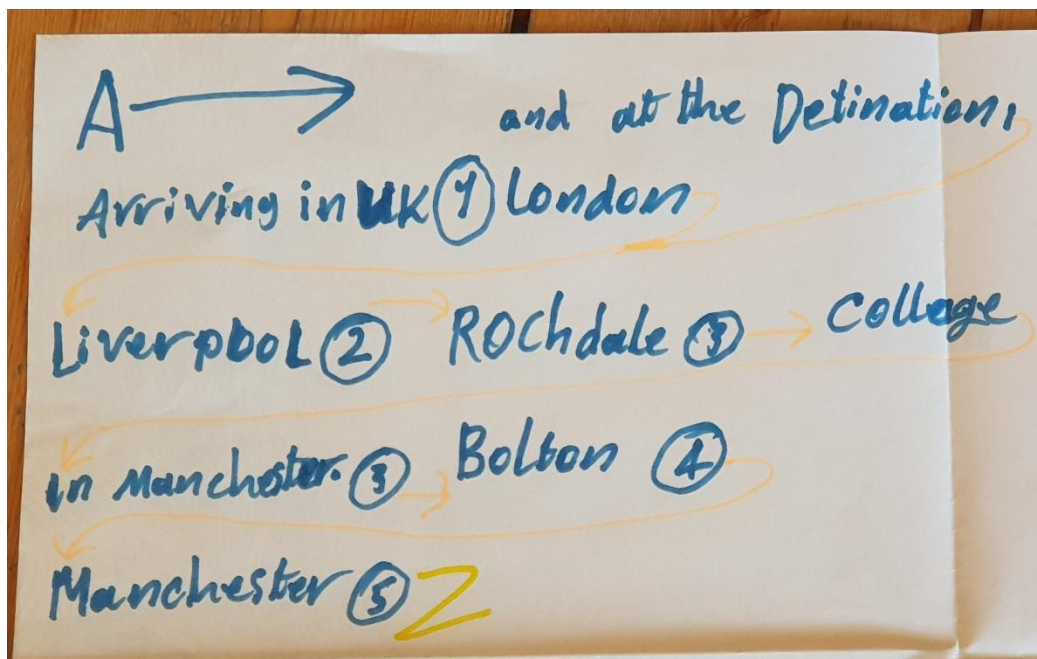 A → and at the Detination,
Arriving in UK ① London
Liverpool ② Rochdale ③ → College
in Manchester. ③ Bolton ④
Manchester ⑤ Z